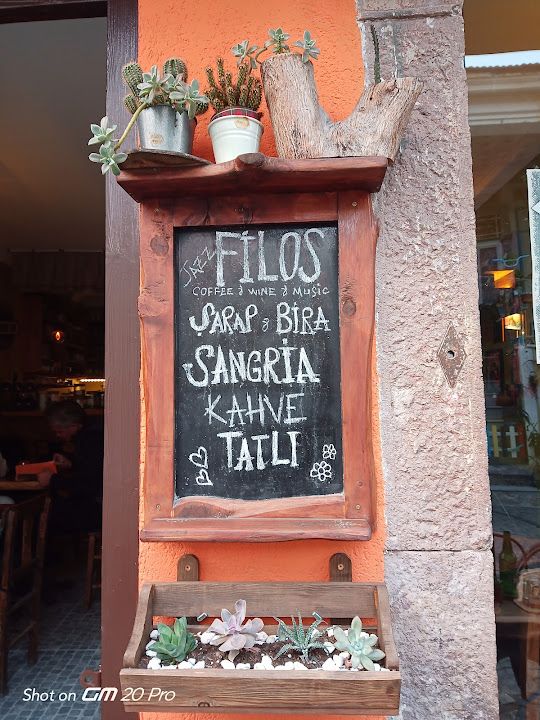 JAZZ
FİLOS
COFFEE & WINE & MUSIC
ŞARAP & BİRA
SANGRİA
KAHVE
TATLI
Shot on GM 20 Pro